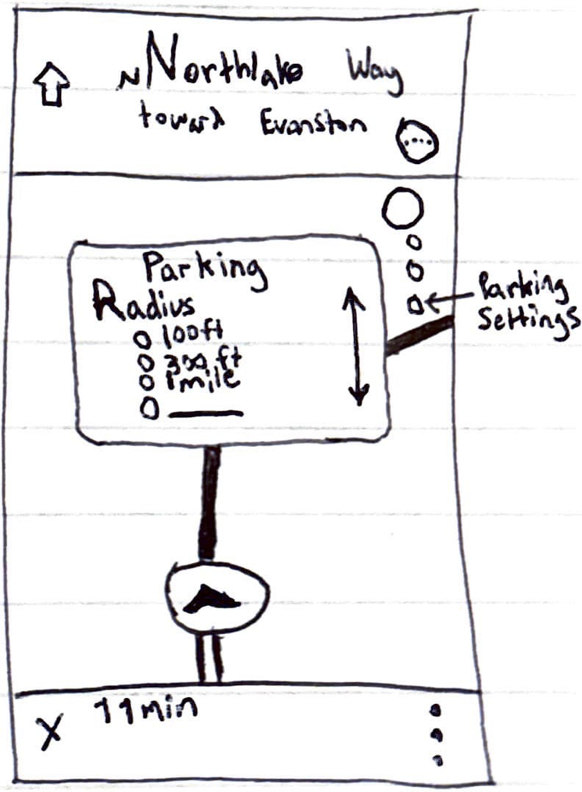 N Northlake Way
toward Evanston
Parking
Radius
100ft
300 ft
1 mile
Parking
Settings
11min
X